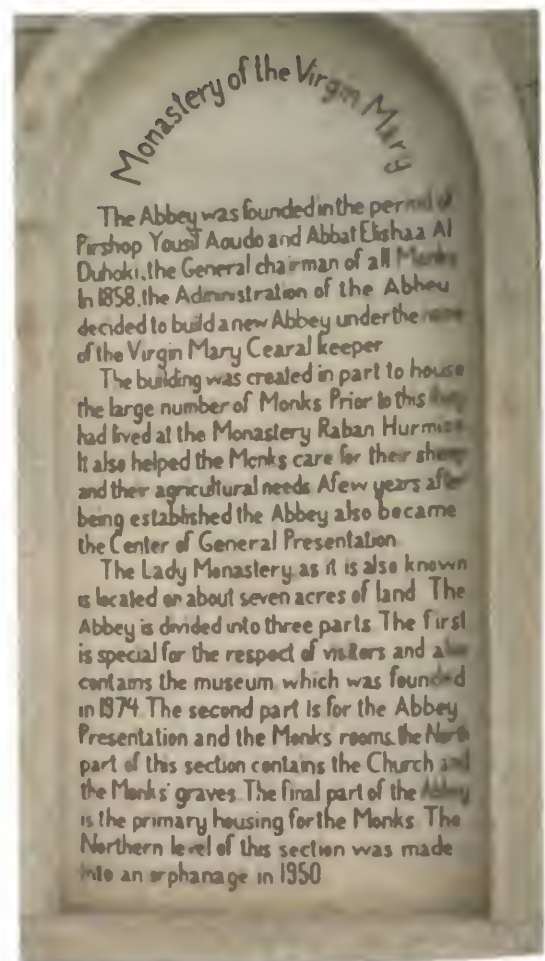 Monastery of the Virgin Mary
The Abbey was founded in the period of
Pirshop Yousif Aoudo and Abbat Elishaa Al
Duhoki, the General chairman of all Monks
In 1858, the Administration of the Abbey
decided to build a new Abbey under the name
of the Virgin Mary Cearal keeper
The building was created in part to house
the large number of Monks Prior to this they
had lived at the Monastery Raban Hurmiz
It also helped the Monks care for their sheep
and their agricultural needs A few years after
being established the Abbey also became
the Center of General Presentation
The Lady Monastery, as it is also known
is located on about seven acres of land The
Abbey is divided into three parts The first
is special for the respect of visitors and also
contains the museum, which was founded
in 1974. The second part is for the Abbey
Presentation and the Monks rooms, the North
part of this section contains the Church and
the Monks' graves. The final part of the Abbey
is the primary housing for the Monks The
Northern level of this section was made
into an orphanage in 1950